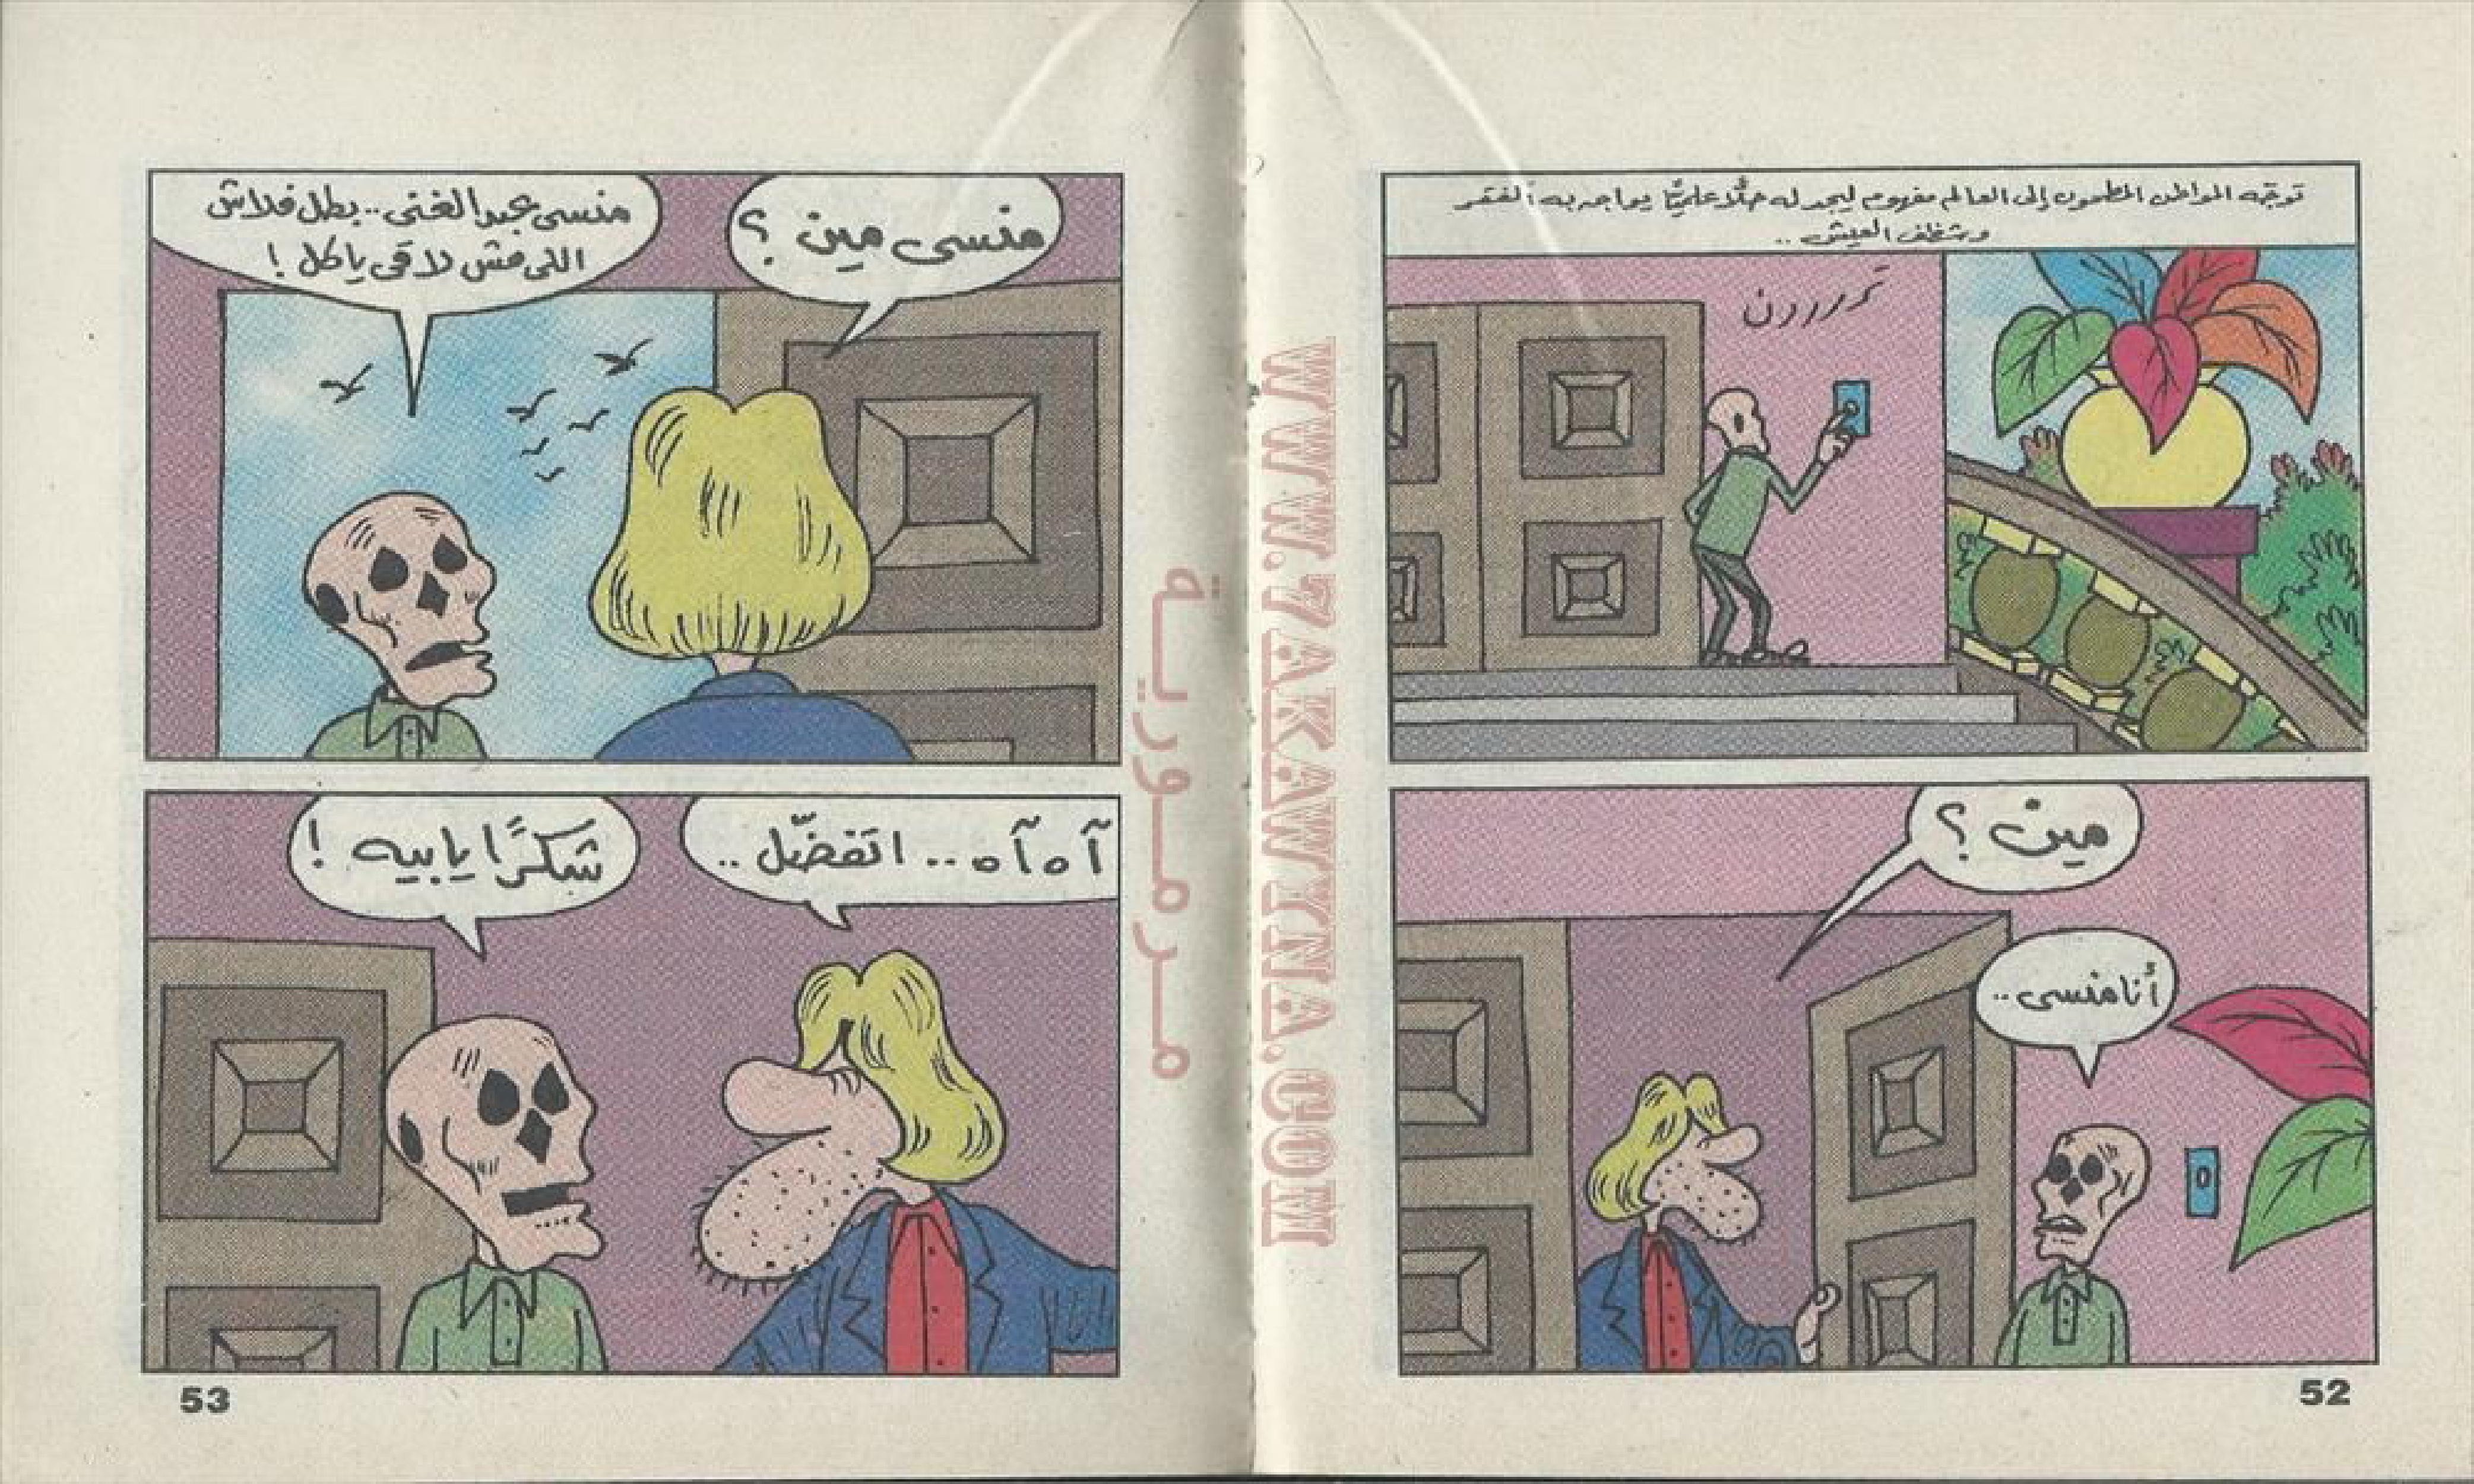 توجّه المواطن المطحون إلى العالم مفهوم ليجد له حلًّا علميًّا يواجه به الفقر
وشظف العيش ..
ترررررن
مين ؟
أنا منسى ..
52
منسى مين ؟
منسى عبد الغنى .. بطل فلاش
اللى مش لاقى ياكل !
آه آه .. اتفضّل ..
شكرًا يا بيه !
53
مرمورية
WWW.7AKAWYNA.COM